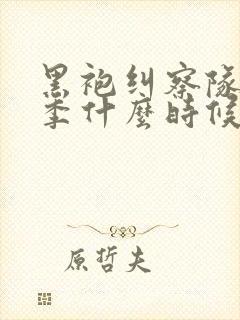 黑袍纠察队
季什麼時候
原哲夫